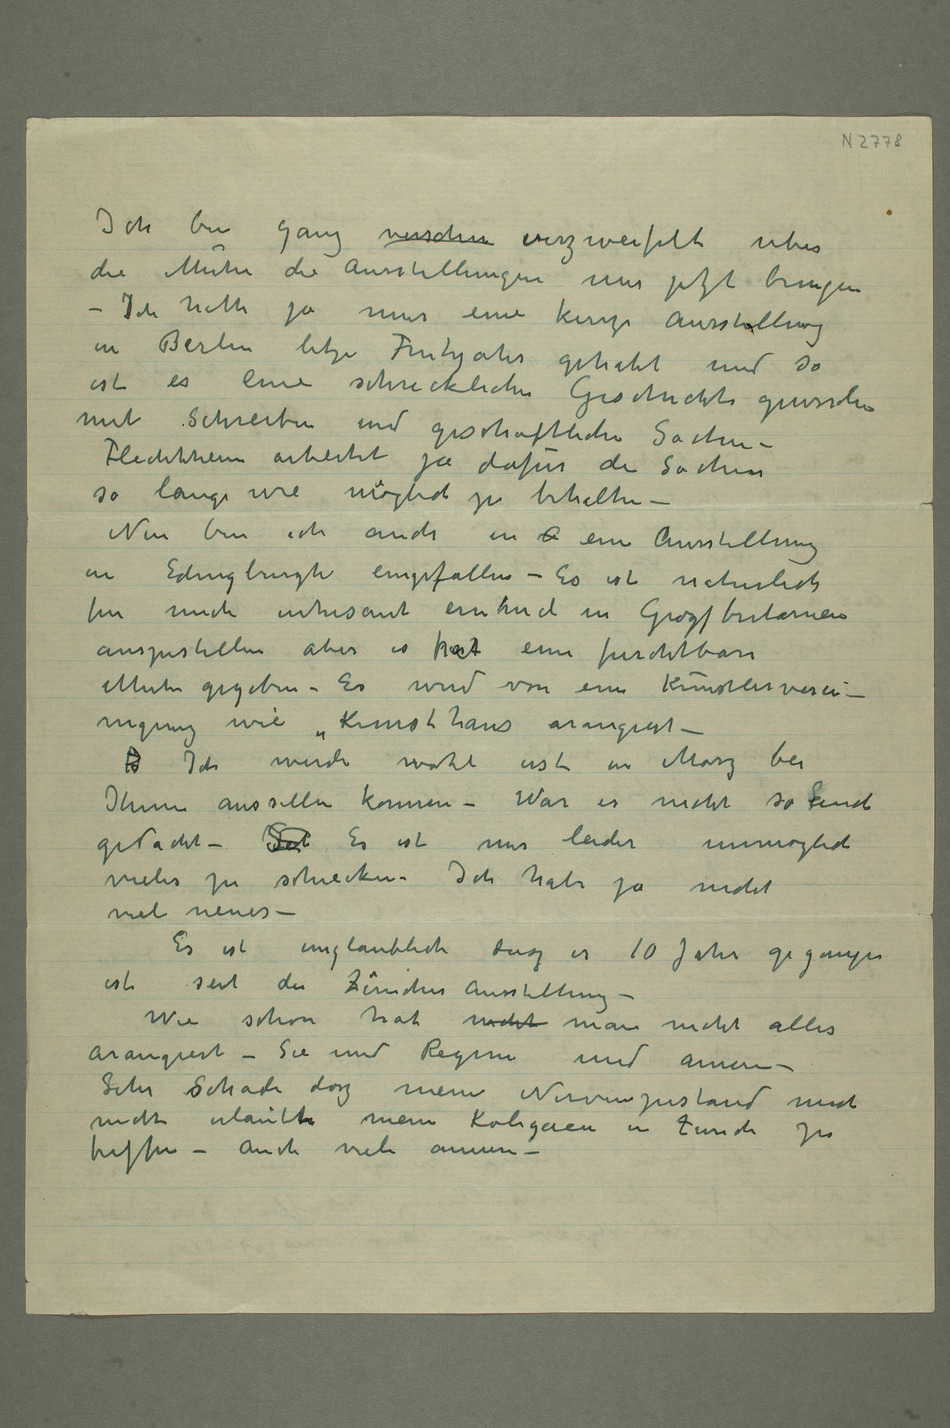 N 2778
Ich bin ganz verzweifelt uber
die Muhe die Ausstellungen mir jetzt bringen
– Ich hatte ja nur eine kurze Ausstellung
in Berlin letze Fruhjahr gehabt und so
ist es eine schreckliche Geschichte geworden
mit Schreiben und geschaftliche Sachen –
Flechtheim arbeitet ja dafür die Sachen
so lange wie möglich zu behalten –
Nun bin ich auch in eine Ausstellung
in Edingburgh eingefallen – Es ist naturlich
fur mich intresant einmal in Grozfbritanien
auszustellen aber es hat eine furchtbare
Muhe gegeben – Es wird von eine Künstlerverei–
nigung wie „Kunsthaus arangiert –
Ich werde wohl erst in Marz bei
Ihnen aussellen konnen – War es nicht so
gedacht – Es ist mir leider unmöglich
vieles zu schicken – Ich habe ja nicht
viel neues –
Es ist unglaublich dasz es 10 Jahr gegangen
ist seit die Züricher Ausstellung –
Wie schon hat man nicht alles
arangiert – Sie und Regine und andere –
Sehr Schade dasz meine Nervenzustand mich
nicht erlaubte meine Kolegaen in Zurich zu
treffen – Auch viele andere –